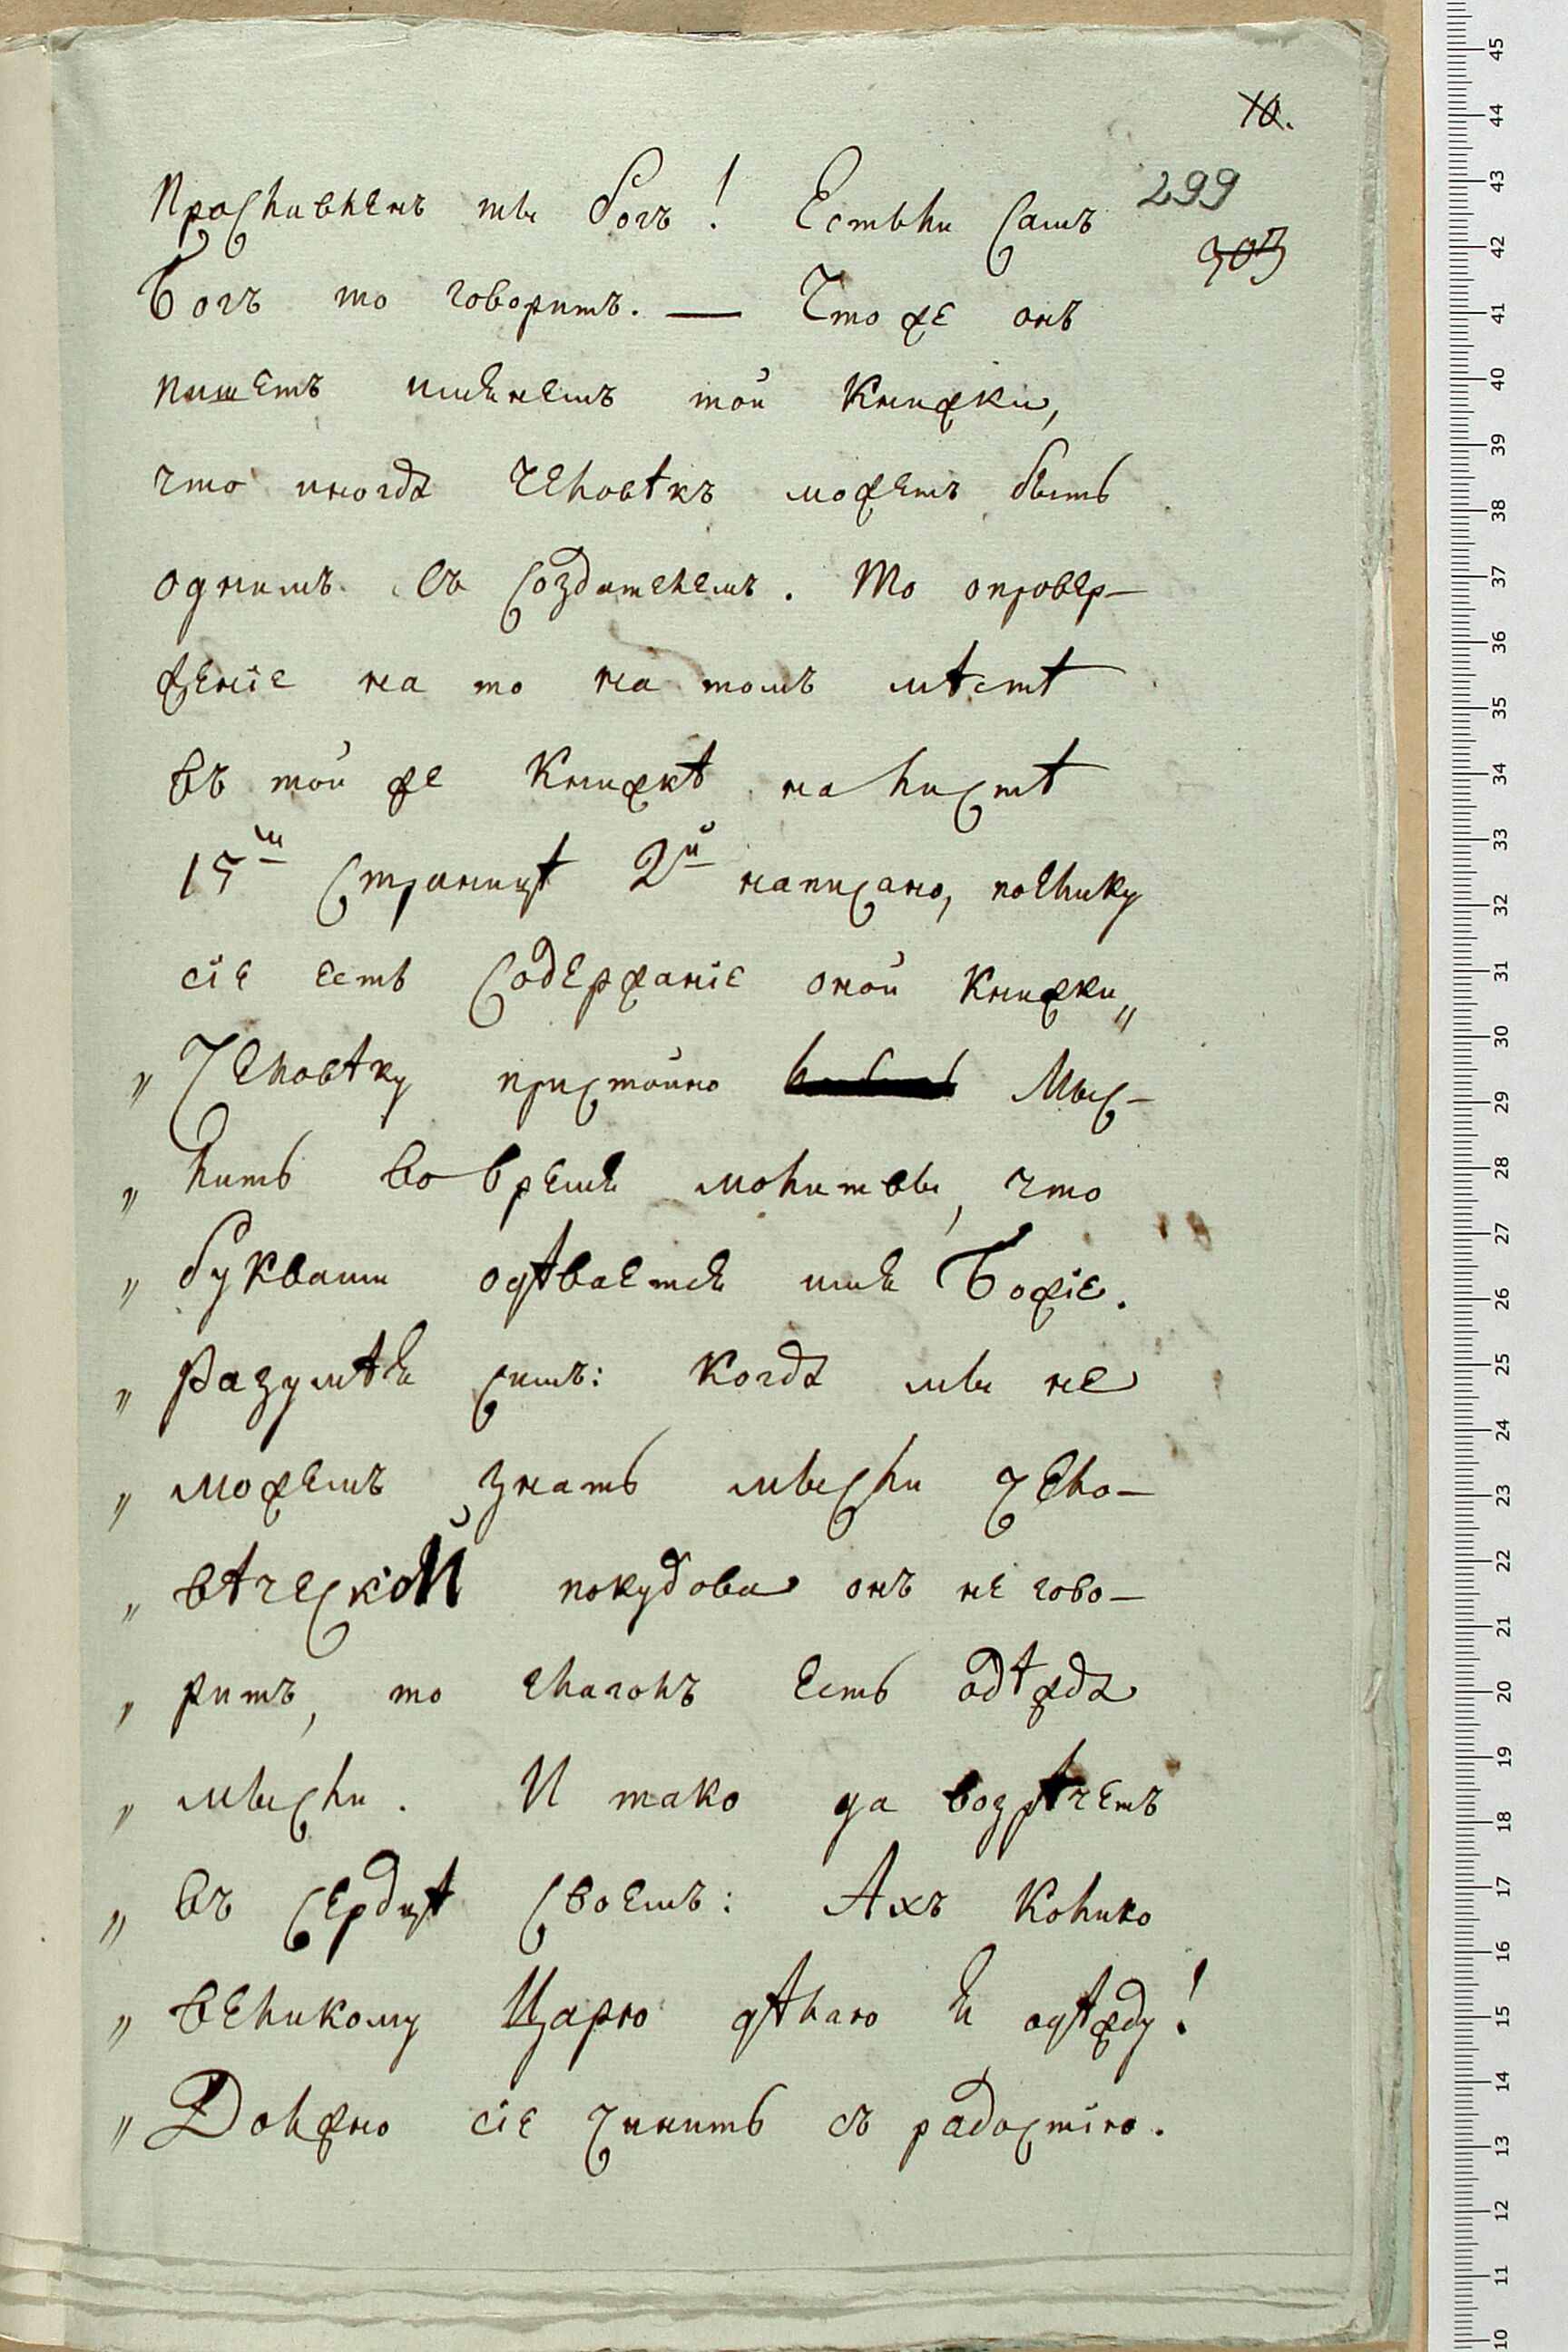 10.
299
303
Прославленъ ты богъ! Естьли Самъ
Богъ то говоритъ. — Что же онъ
пишетъ имянемъ той Книжки,
что иногда Человѣкъ можетъ быть
однимъ съ Создателемъ. То опровер-
женіе на то на томъ мѣстѣ
въ той же Книжкѣ на листѣ
15м Страницѣ 2й написано, поелику
сіе есть Содержаніе оной Книжки„
„ Человѣку пристойно Мыс-
„ лить во время молитвы, что
„ буквами одѣвается имя Божіе.
„ Разумѣя симъ: Когда мы не
„ можемъ знать мысли чело-
„ вѣческой покудова онъ не гово-
„ ритъ, то глаголъ есть одѣжда
„ мысли. И тако да возрѣчетъ
„ въ сердцѣ своемъ: Ахъ Колико
„ великому Царю дѣлаю я одѣжду!
„ Должно сіе чинить съ радостію.